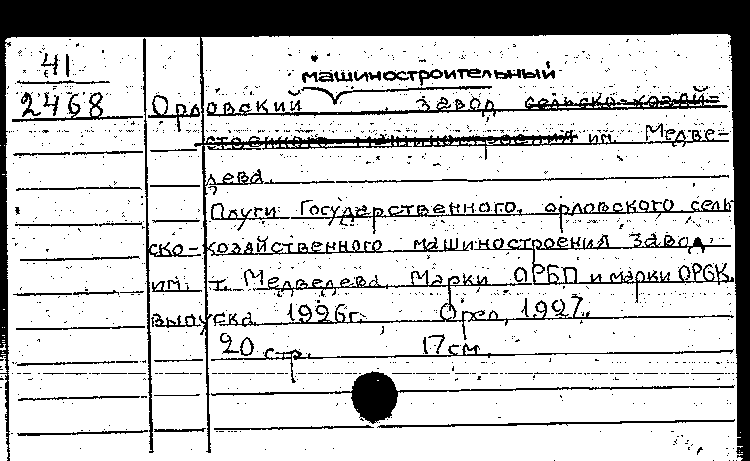 41
2468
машиностроительный
Орловский завод сельско-хозяй-
ственного машиностроения им. Медве-
дева.
Плуги Государственного, орловского сель
ско-хозяйственного машиностроения завод
им. т. Медведева. Марки ОРБП и марки ОРБК.
выпуска 1926г. Орел, 1927.
20 стр. 17см.